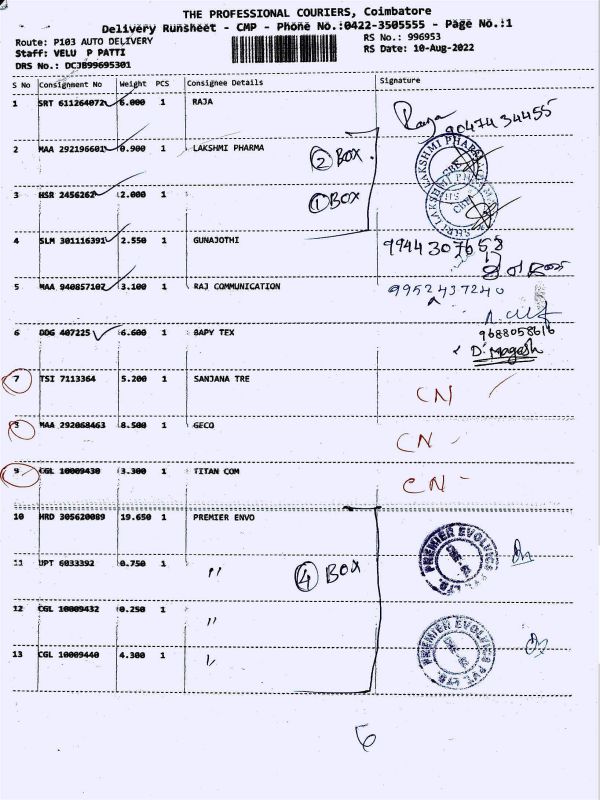 THE PROFESSIONAL COURIERS, Coimbatore
Delivery Runsheet - CMP - Phone No.:0422-3505555 - Page No.:1
Route: P103 AUTO DELIVERY
RS No.: 996953
Staff: VELU P PATTI
RS Date: 10-Aug-2022
DRS No.: DCJB99695301
S No Consignment No Weight PCS Consignee Details Signature
1 SRT 611264072 6.000 1 RAJA
Raja
90474 34455
2 MAA 292196601 0.900 1 LAKSHMI PHARMA
② BOX
3 HSR 2456262 2.000 1
① BOX
LAKSHMI PHARMA
CBE
4 SLM 301116391 2.550 1 GUNAJOTHI
9944307658
5 MAA 940857107 3.100 1 RAJ COMMUNICATION
9952437240
6 DDG 407225 6.600 1 BAPY TEX
9688058616
D. Magesh
7 TSI 7113364 5.200 1 SANJANA TRE
CN
8 MAA 292068463 8.500 1 GECO
CN
9 CGL 10009430 3.300 1 TITAN COM
CN
10 HRD 305620089 19.650 1 PREMIER ENVO
11 UPT 6033392 0.750 1 "
④ BOX
PREMIER EVOLVICS PVT. LTD.
12 CGL 10009432 0.250 1 "
13 CGL 10009440 4.300 1 "
PREMIER EVOLVICS PVT. LTD.
6